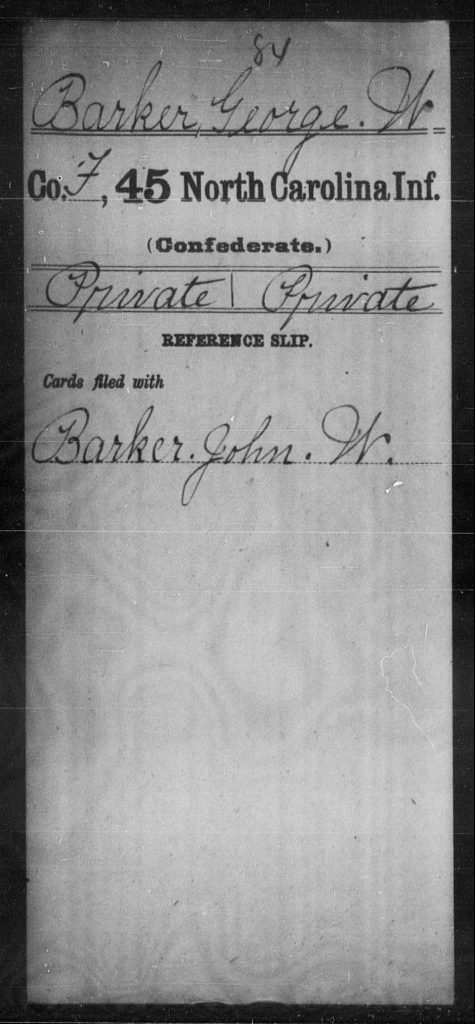 84
Barker, George. W.
Co. F, 45 North Carolina Inf.
(Confederate.)
Private | Private
REFERENCE SLIP.
Cards filed with
Barker. John. W.